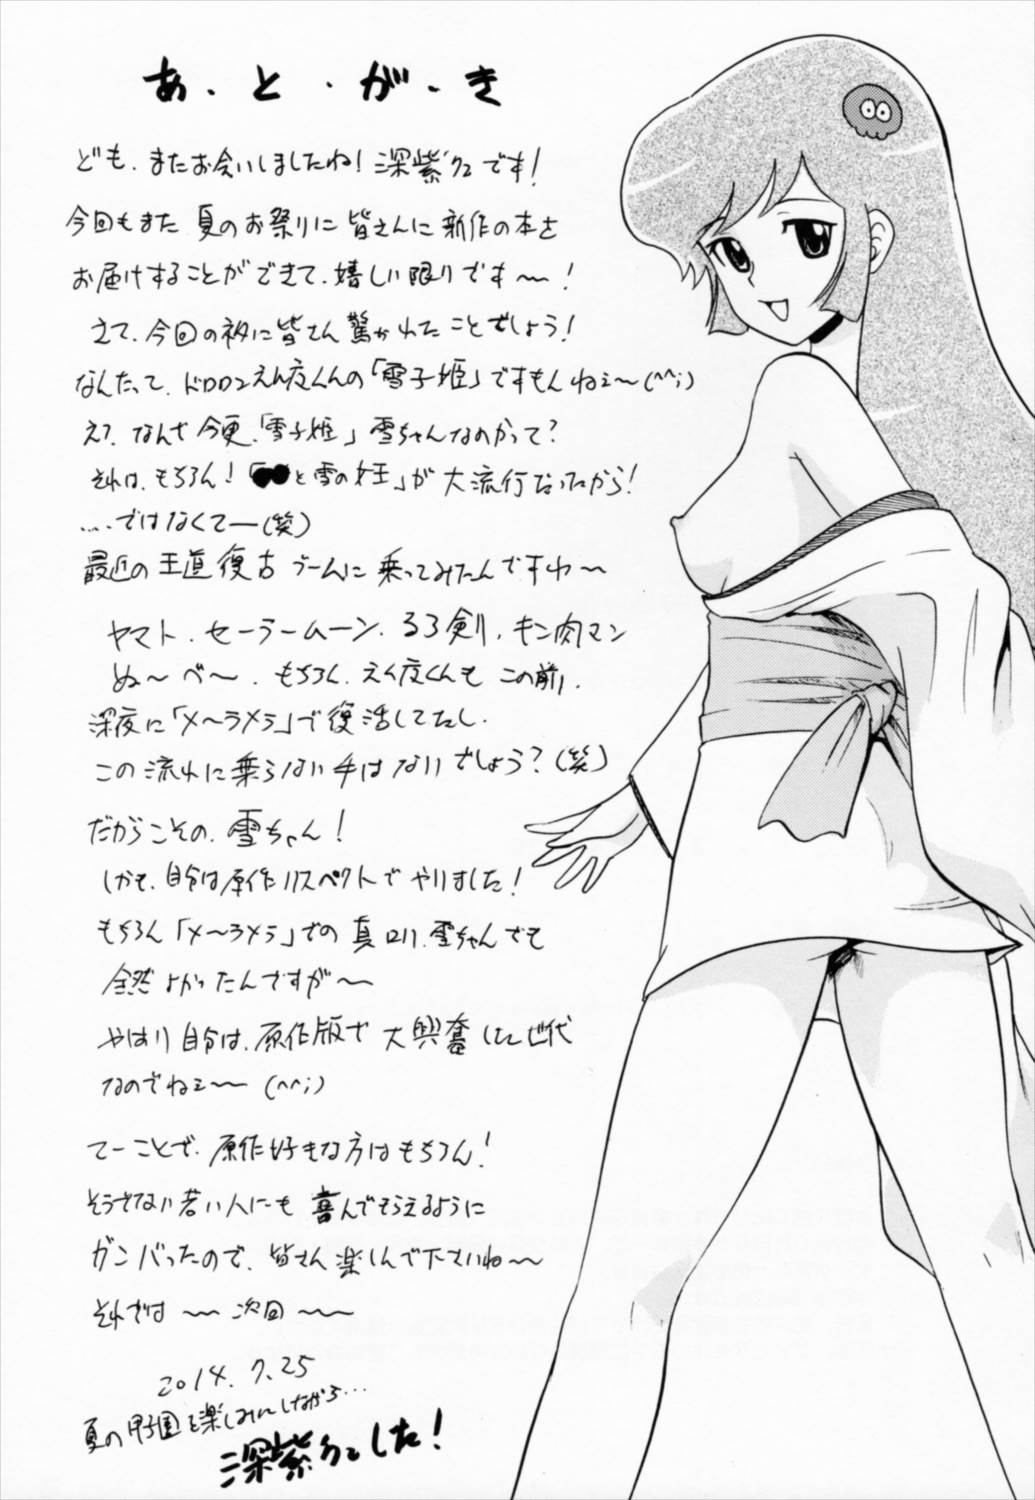 あ・と・が・き
ども、またお会いしましたね！深紫です！
今回もまた 夏のお祭りに 皆さんに 新作の本を
お届けすることができて、嬉しい限りです〜！
さて、今回のネタに皆さん驚かれたことでしょう！
なんたって、ドロロンえん魔くんの「雪子姫」ですもんねェ〜(^^;)
え？なんで今更、「雪子姫」雪ちゃんなのかって？
それは、もちろん！「●●と雪の女王」が 大流行だったから！
‥‥ではなくてー(笑)
最近の王道復古ブームに 乗ってみたんですわ〜
ヤマト、セーラームーン、るろ剣、キン肉マン
ぬ〜べ〜、もちろん、えん魔くんも この前、
深夜に「メ〜ラメラ」で復活してたし、
この流れに乗らない手はないでしょう？(笑)
だからこその、雪ちゃん！
しかも、自分は原作リスペクトで やりました！
もちろん「メ〜ラメラ」での 真ロリ 雪ちゃんでも
全然よかったんですが〜
やはり自分は、原作版で 大興奮した世代
なのでねェ〜 (^^;)
てーことで、原作好きな方はもちろん！
そうさない若い人にも 喜んでもらえるように
ガンバったので、皆さん楽しんで下さいね〜
それでは 〜 次回 〜
2014.7.25
夏の甲子園を楽しみにしながら…
深紫でした！